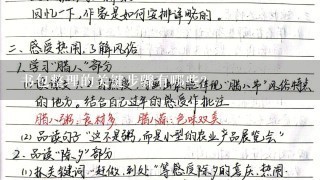 回忆一下，作家是如何安排详略的。
二、感受热闹，了解风俗
1. 学习“腊八”部分
书包整理的关键步骤有哪些?
的地方。结合自己过年的感受作批注
腊八粥：食材多 腊八蒜：色味双美
(2) 品读句子“这不是粥，而是小型的农业产品展览会”
2. 品读“除夕”部分
(1) 抓关键词：赶做、到处“等感受除夕的喜庆、热闹